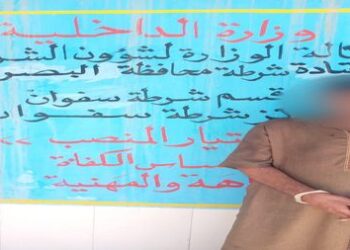 وزارة الداخلية
الة الوزارة لشؤون الشر
ادة شرطة محافظة البصر
قسم شرطة سفوان
ز شرطة سفوا
تيار المنصب >>
ساس الكفاة
هة والمهنية